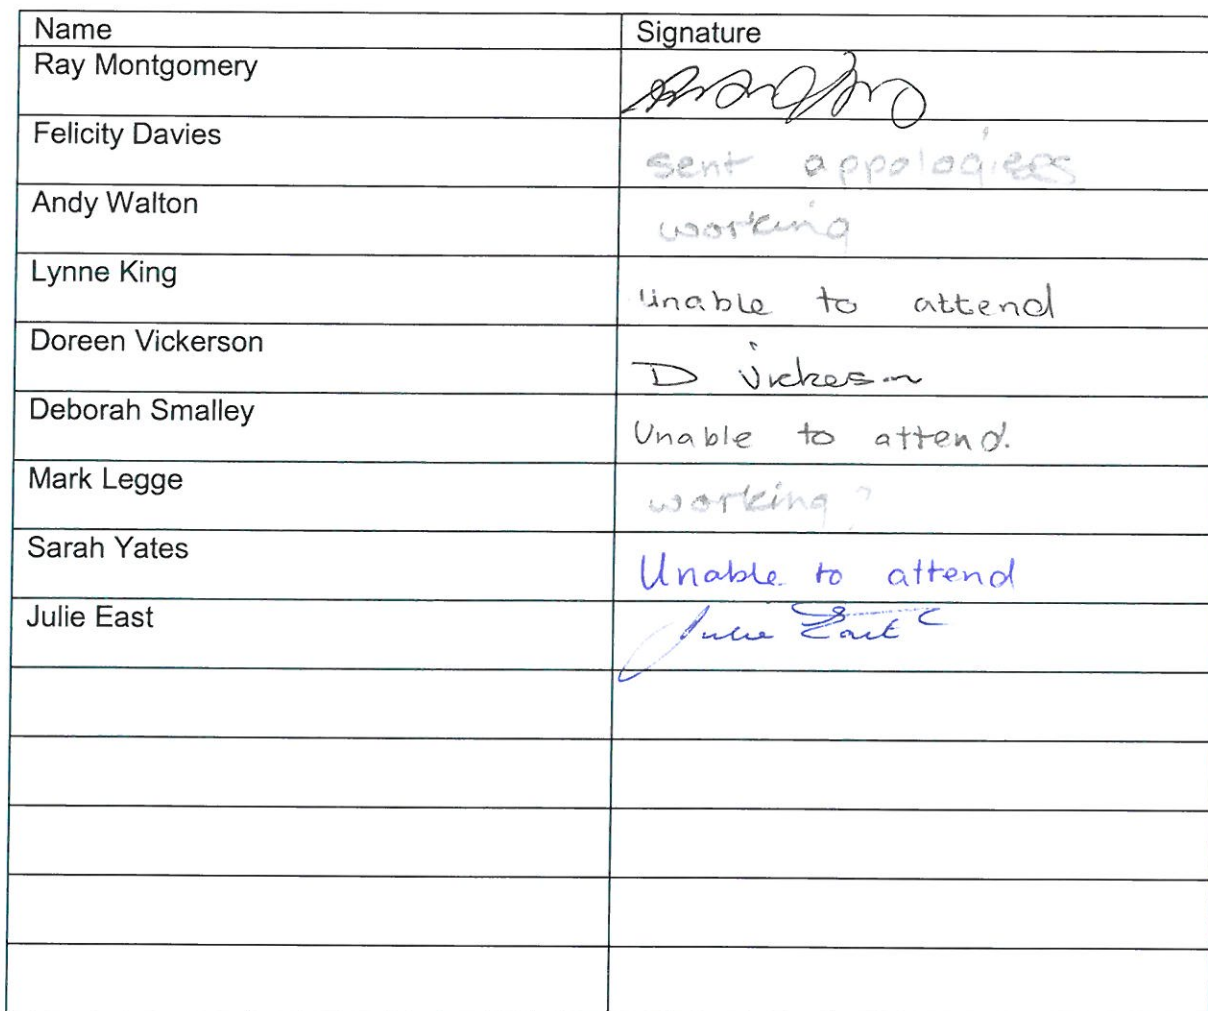 Name Signature
Ray Montgomery
Felicity Davies sent appologiees
Andy Walton working
Lynne King Unable to attend
Doreen Vickerson D Vickerson
Deborah Smalley Unable to attend.
Mark Legge working?
Sarah Yates Unable to attend
Julie East Julie East